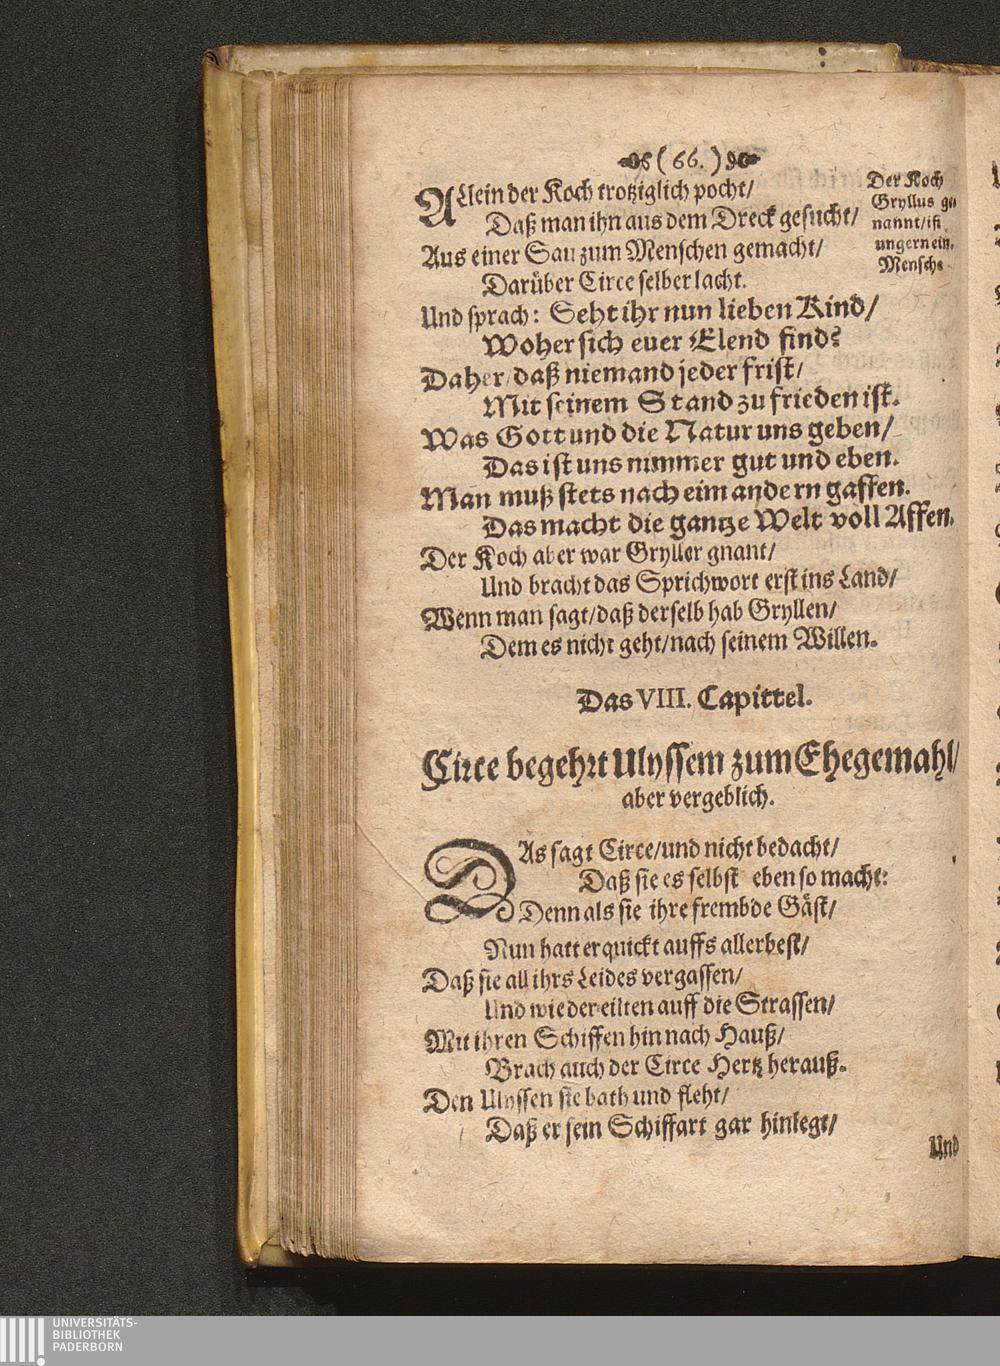 ( 66. )
ALlein der Koch trotziglich pocht/
Daß man ihn aus dem Dreck gesucht/
Aus einer Sau zum Menschen gemacht/
Darüber Circe selber lacht.
Der Koch
Gryllus ge
nannt/ist
ungern ein
Mensch
Und sprach: Seht ihr nun lieben Kind/
Woher sich euer Elend find?
Daher/daß niemand jeder frist/
Mit seinem Stand zu frieden ist.
Was Gott und die Natur uns geben/
Das ist uns nimmer gut und eben.
Man muß stets nach eim andern gaffen.
Das macht die gantze Welt voll Affen.
Der Koch aber war Gryller gnant/
Und bracht das Sprichwort erst ins Land/
Wenn man sagt/daß derselb hab Gryllen/
Dem es nicht geht/nach seinem Willen.
Das VIII. Capittel.
Circe begehrt Ulyssem zum Ehegemahl/
aber vergeblich.
DAs sagt Circe/und nicht bedacht/
Daß sie es selbst eben so macht:
Denn als sie ihre frembde Gäst/
Nun hatt erquickt auffs allerbest/
Daß sie all ihrs Leides vergassen/
Und wieder eilten auff die Strassen/
Mit ihren Schiffen hin nach Hauß/
Brach auch der Circe Hertz herauß.
Den Ulyssen sie bath und fleht/
Daß er sein Schiffart gar hinlegt/
Und
UNIVERSITÄTS-
BIBLIOTHEK
PADERBORN